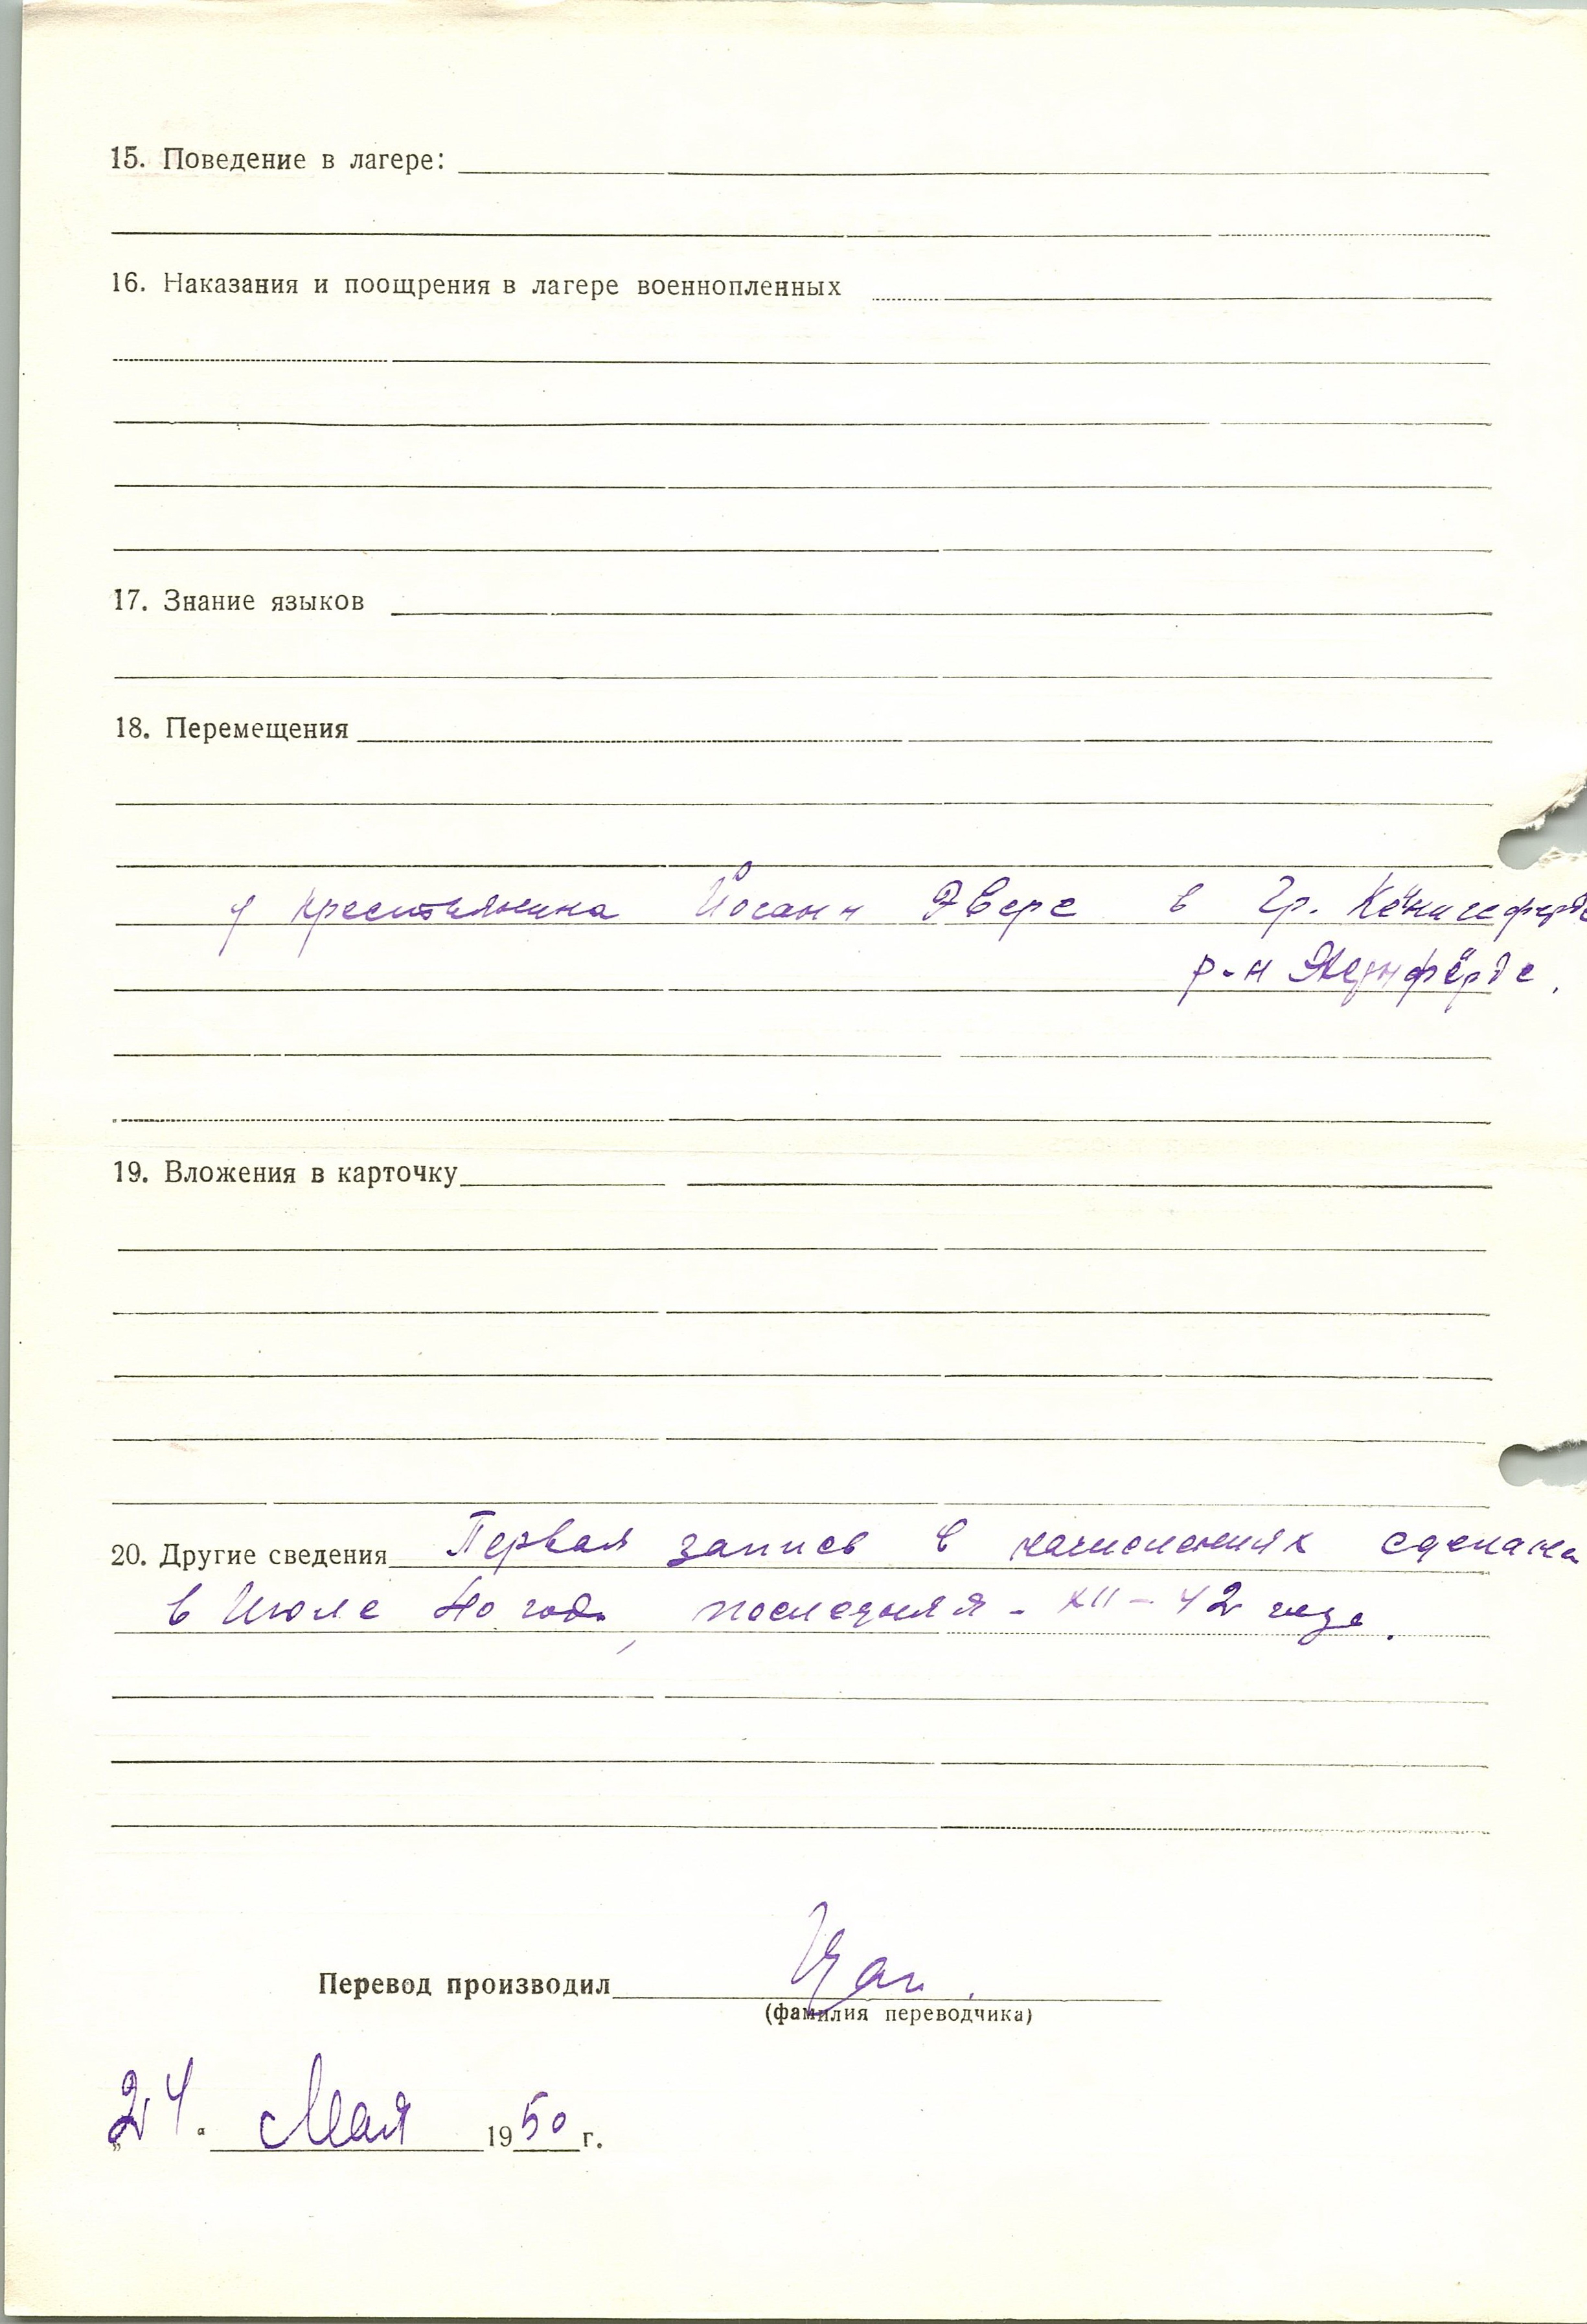 15. Поведение в лагере:
16. Наказания и поощрения в лагере военнопленных
17. Знание языков
18. Перемещения
у крестьянина Йоганн Эверс в Гр. Кёнигсфёрде
р-н Экернфёрде.
19. Вложения в карточку
20. Другие сведения Первая запись в начислениях сделана
в Июле 40 года, последняя - XII - 42 года.
Перевод производил
(фамилия переводчика)
„24“ Мая 1950 г.